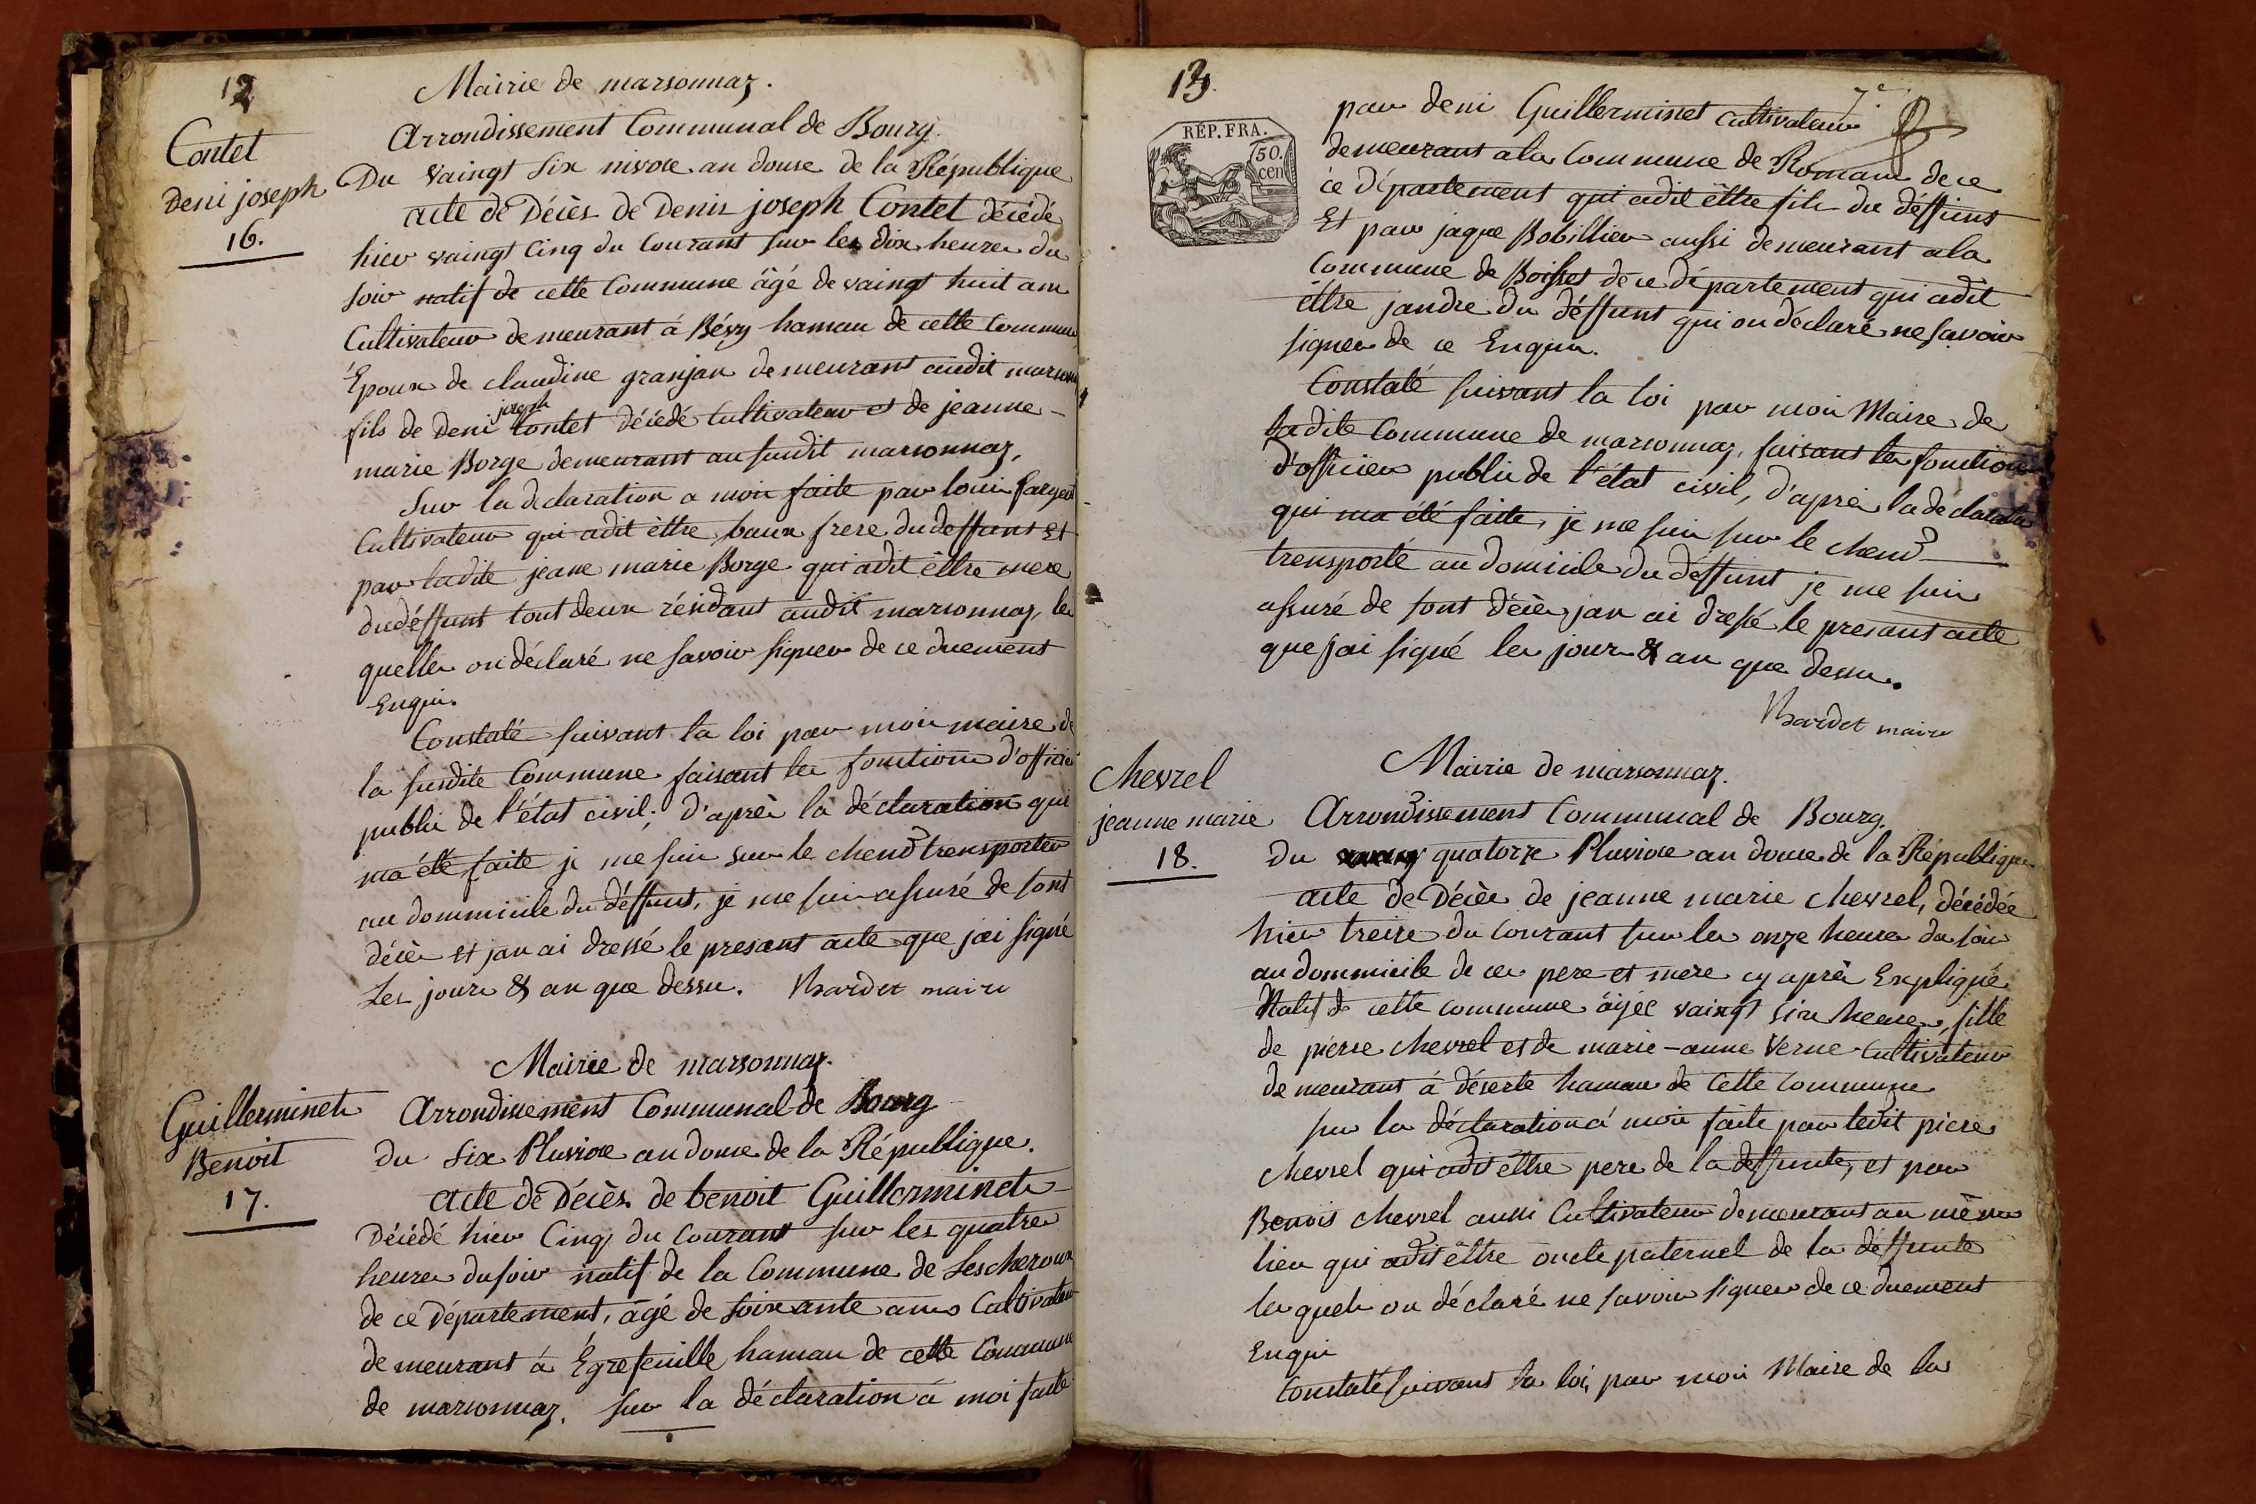 12
Mairie de marsonnaz.
Arrondissement Communal de Bourg.
Contet
Deni joseph
16.
Du vaingt six nivose an douse de la République
acte de Décès de Denis joseph Contet décédé
hier vaingt Cinq du Courant sur les dix heures du
soir natif de cette Commune âgé de vaingt huit ans
Cultivateur demeurant á Bévy hamau de cette Commune
Epoux de claudine granjan demeurant audit marsonn
joseph
fils de Deni Contet décédé Cultivateur et de jeanne
marie Borge demeurant au susdit marsonnaz,
Sur la déclaration a moi faite par louis fargeot
Cultivateur qui adit êttre baux frere du deffunt Et
par ladite jeane marie Borge qui adit êttre mere
dudéffunt tout deux résidant audit marsonnaz, les
quelles on déclaré ne savoir signer de ce duement
Enquis.
Constaté suivant la loi par moi maire de
la susdite Commune faisant les fonctions d'officier
public de l'état civil; d'après la déclaration qui
ma été faite je me suis sur le chend transporter
au dommicile du déffunt, je me suis assuré de sont
décès et jan ai dressé le presant acte que jai signé
Les jours & an que dessus. Bardet maire
Mairie de marsonnaz.
Guillerminet
Benoit
17.
Arrondissement Communal de Bourg
du six Pluviose an douse de la République.
acte de Décès de benoit Guillerminet
Décédé hier Cinq du Courant sur les quatre
heures du soir natif de la Commune de Lescheroux
de ce Département, âgé de soixante ans Cultivateur
demeurant á Egrefeuille hamau de cette Commune
de marsonnaz. sur la déclaration á moi faite
13.
7e.
RÉP. FRA.
50.
cen
par deni Guillerminet cultivateur
demeurant ala Commune de Romans de ce
ce Département qui adit êttre fils du déffunt
Et par jaque Bobillier aussi demeurant ala
Commune de Boisset de ce département qui adit
êttre jandre du déffunt qui on déclaré ne savoir
signer de ce Enquis.
Constaté suivant la loi par moi Maire de
ladite Commune de marsonnaz, faisant les fonctions
d'officier public de l'état civil, d'après la déclaration
qui ma été faite, je me suis sur le chend
transporté au domicile du déffunt je me suis
assuré de sont décès jan ai dressé le presant acte
que jai signé les jours & an que dessus.
Bardet maire
Chevrel
jeanne marie
18.
Mairie de marsonnaz.
Arrondissement Communal de Bourg.
du quatorze Pluviose an douse de la République
acte de Décès de jeanne marie chevrel, décédée
hier treise du Courant sur les onze heures du soir
au dommicile de ces pere et mere cy après Expliqué
Natif de cette commune âgée vaingt six heures, fille
de pierre chevrel et de marie-anne Verne Cultivateur
demeurant á déserte hamau de Cette Commune
sur la déclaration á moi faite par ledit piere
chevrel qui adit êttre pere de la deffunte, et par
Benois chevrel aussi Cultivateur demeurant au mème
lieu qui adit êttre oncle paternel de la déffunte
les quels on déclaré ne savoir signer de ce duement
Enquis
Constaté suivant la loi, par moi Maire de la